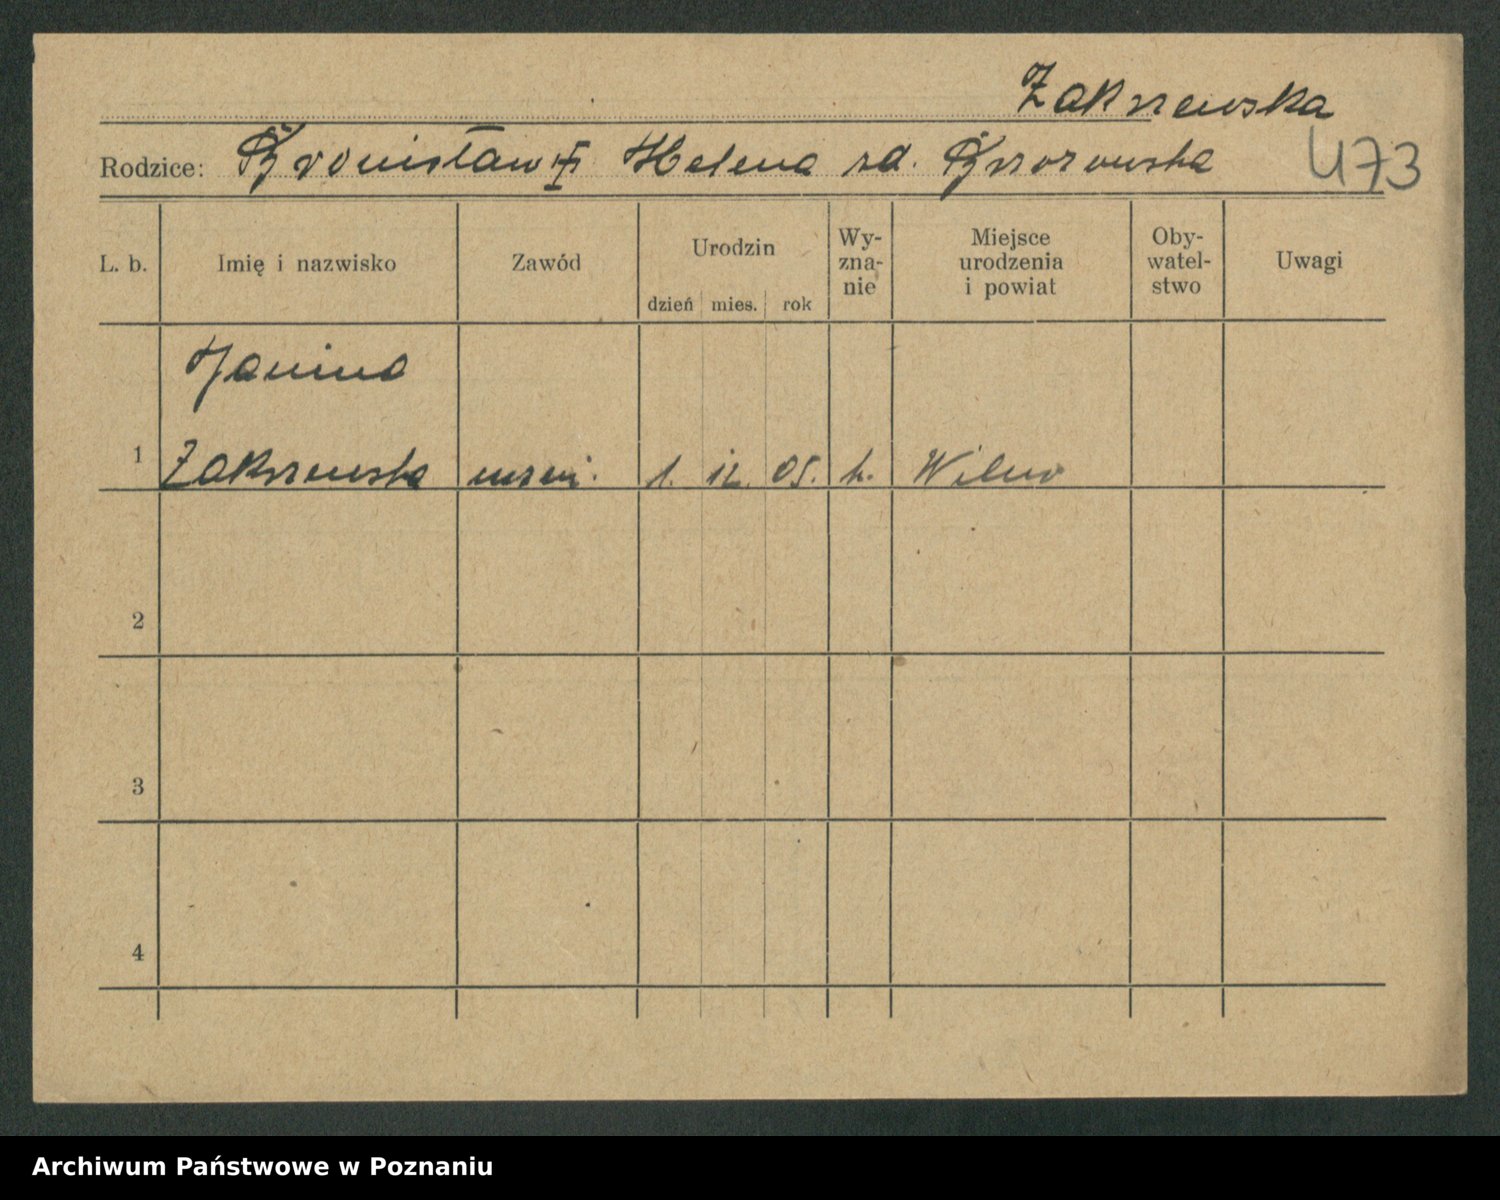 Zakrzewska
Rodzice: Bronisław i Helena zd. Brzozowska
473
L. b. Imię i nazwisko Zawód Urodzin dzień mies. rok Wy-zna-nie Miejsce urodzenia i powiat Oby-watel-stwo Uwagi
Janina
1 Zakrzewska 1. 12. 05. k. Wilno
2
3
4
Archiwum Państwowe w Poznaniu